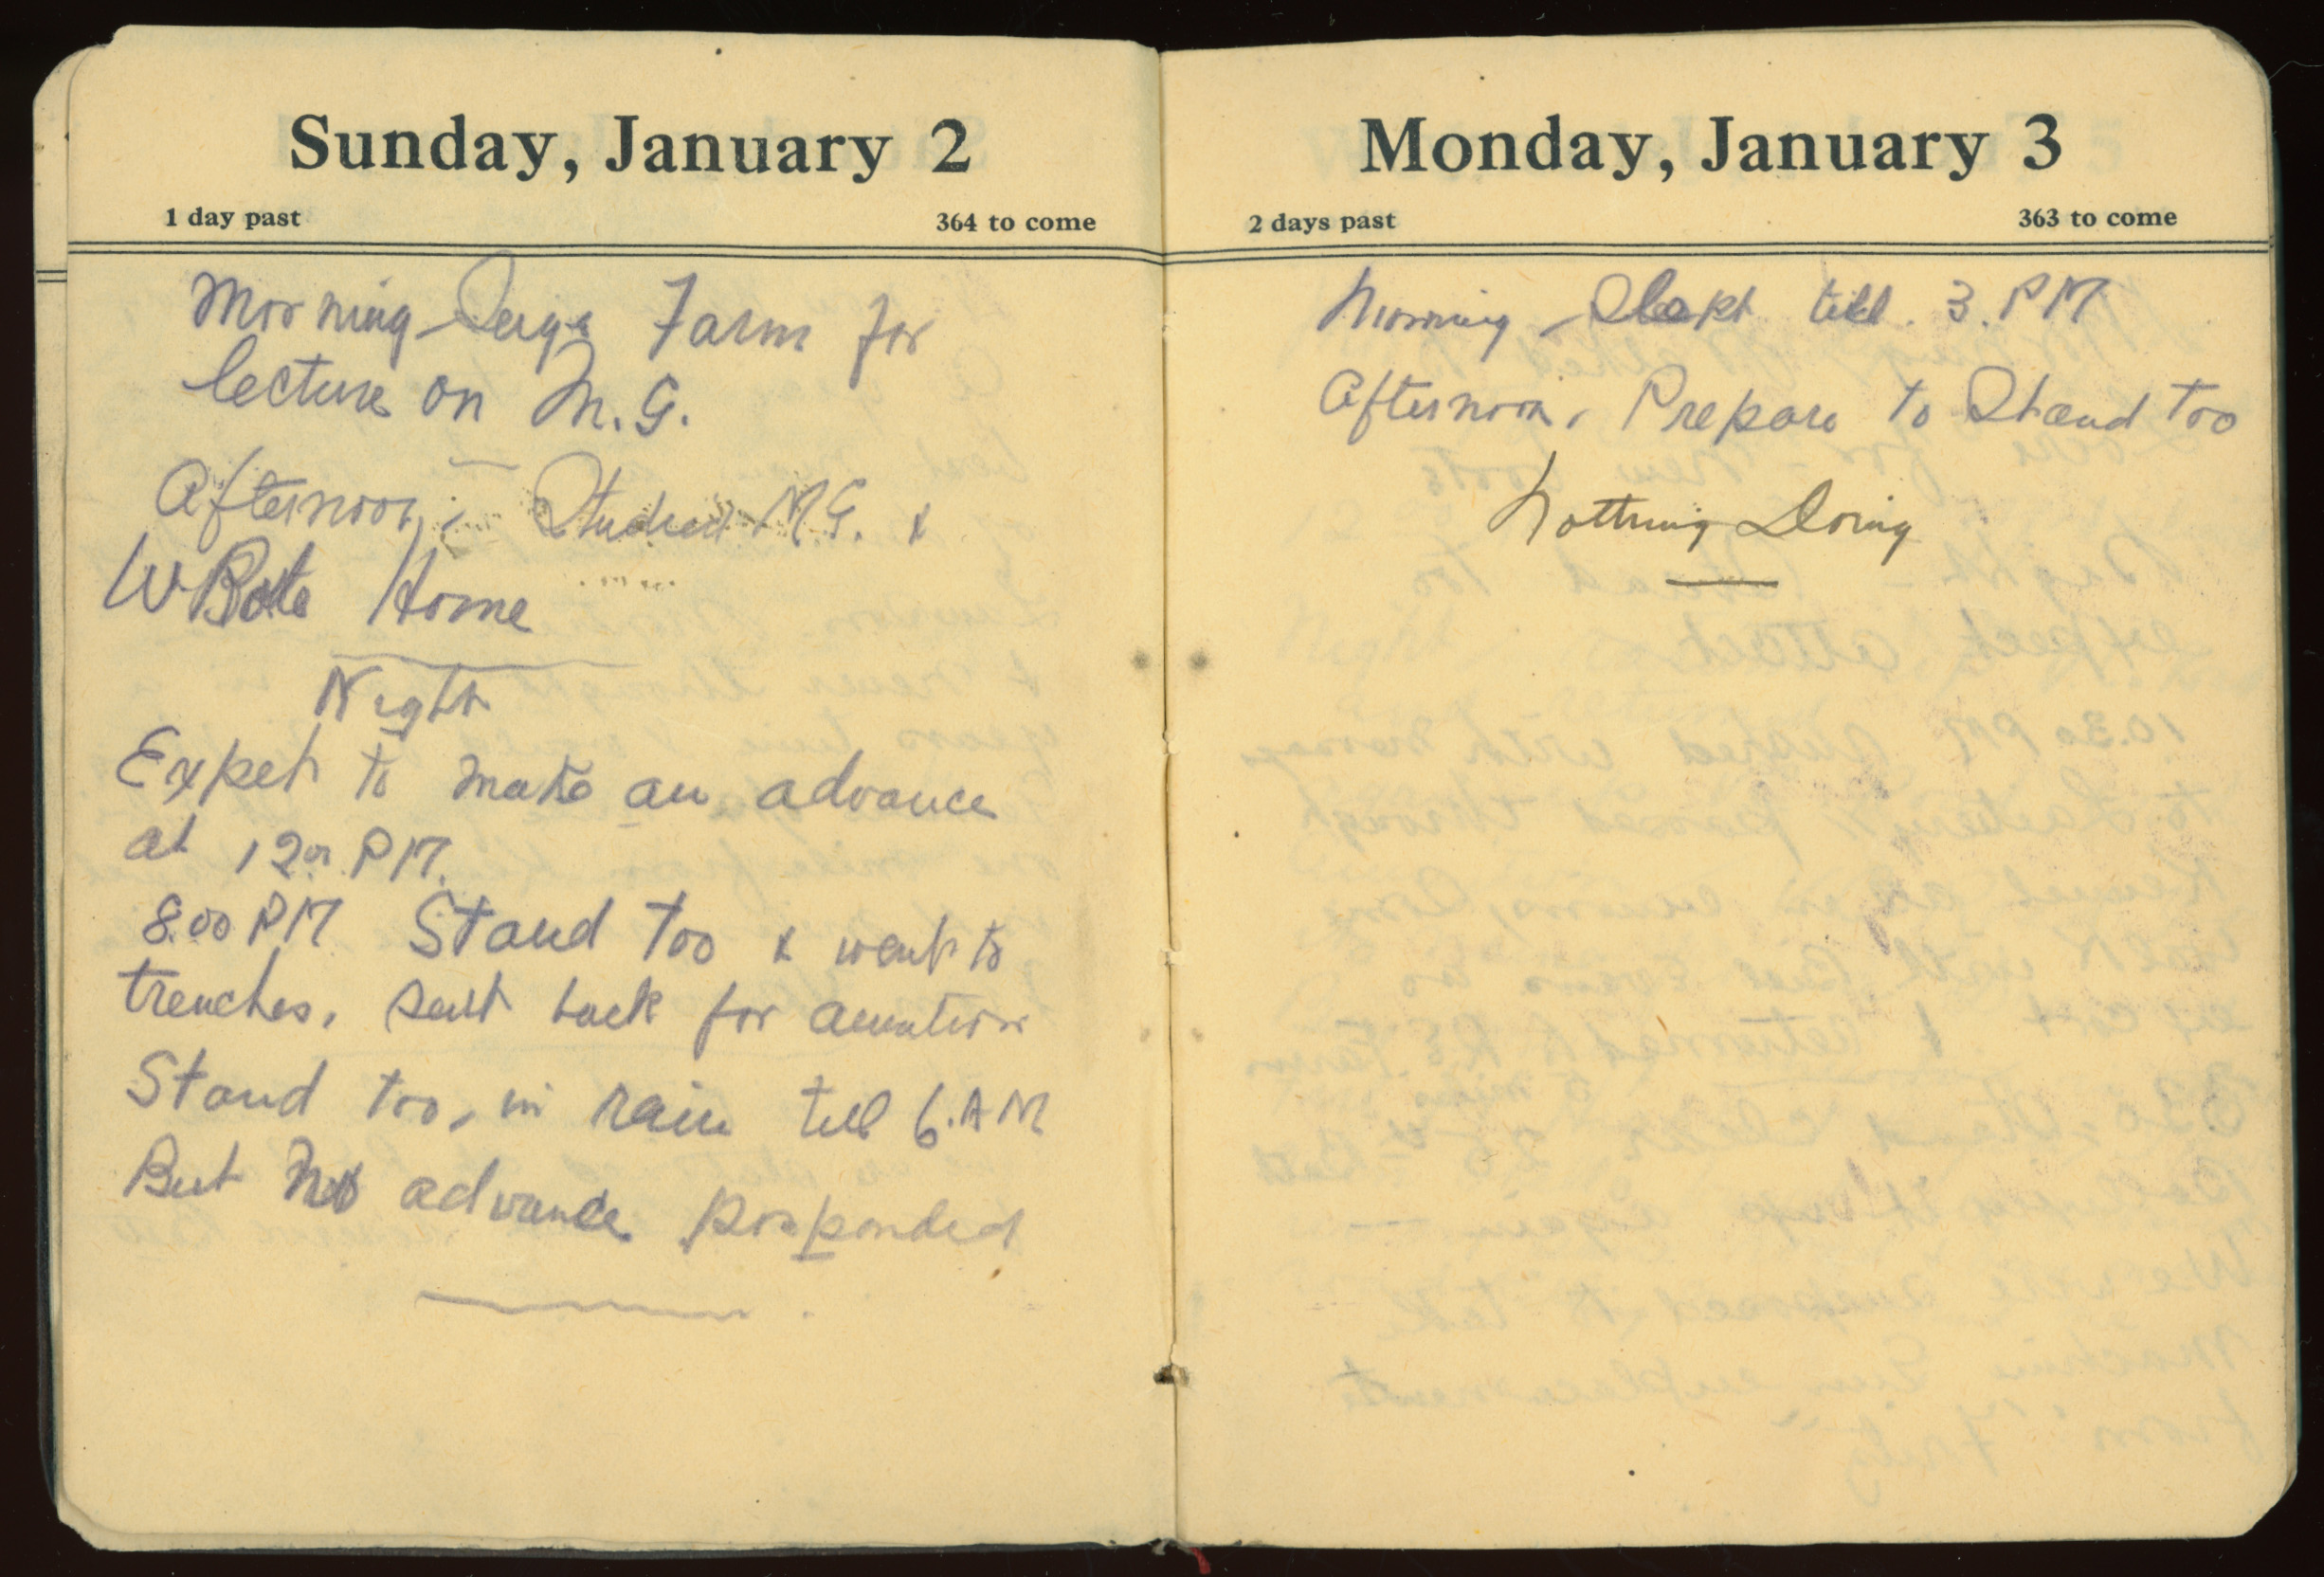 Sunday, January 2
1 day past 364 to come
Morning - Farm for
lecture on M.G.
Afternoon; - Studied M.G. &
WRote Home
Night
Expet to make an advance
at 12 P M.
8.00 P M Stand too & went to
trenches, sent back for
Stand too, in rain till 6. A M
But No advance posponded
Monday, January 3
2 days past 363 to come
Morning - Slept till. 3. P M
Afternoon, Prepare to Stand too
Nothing Doing